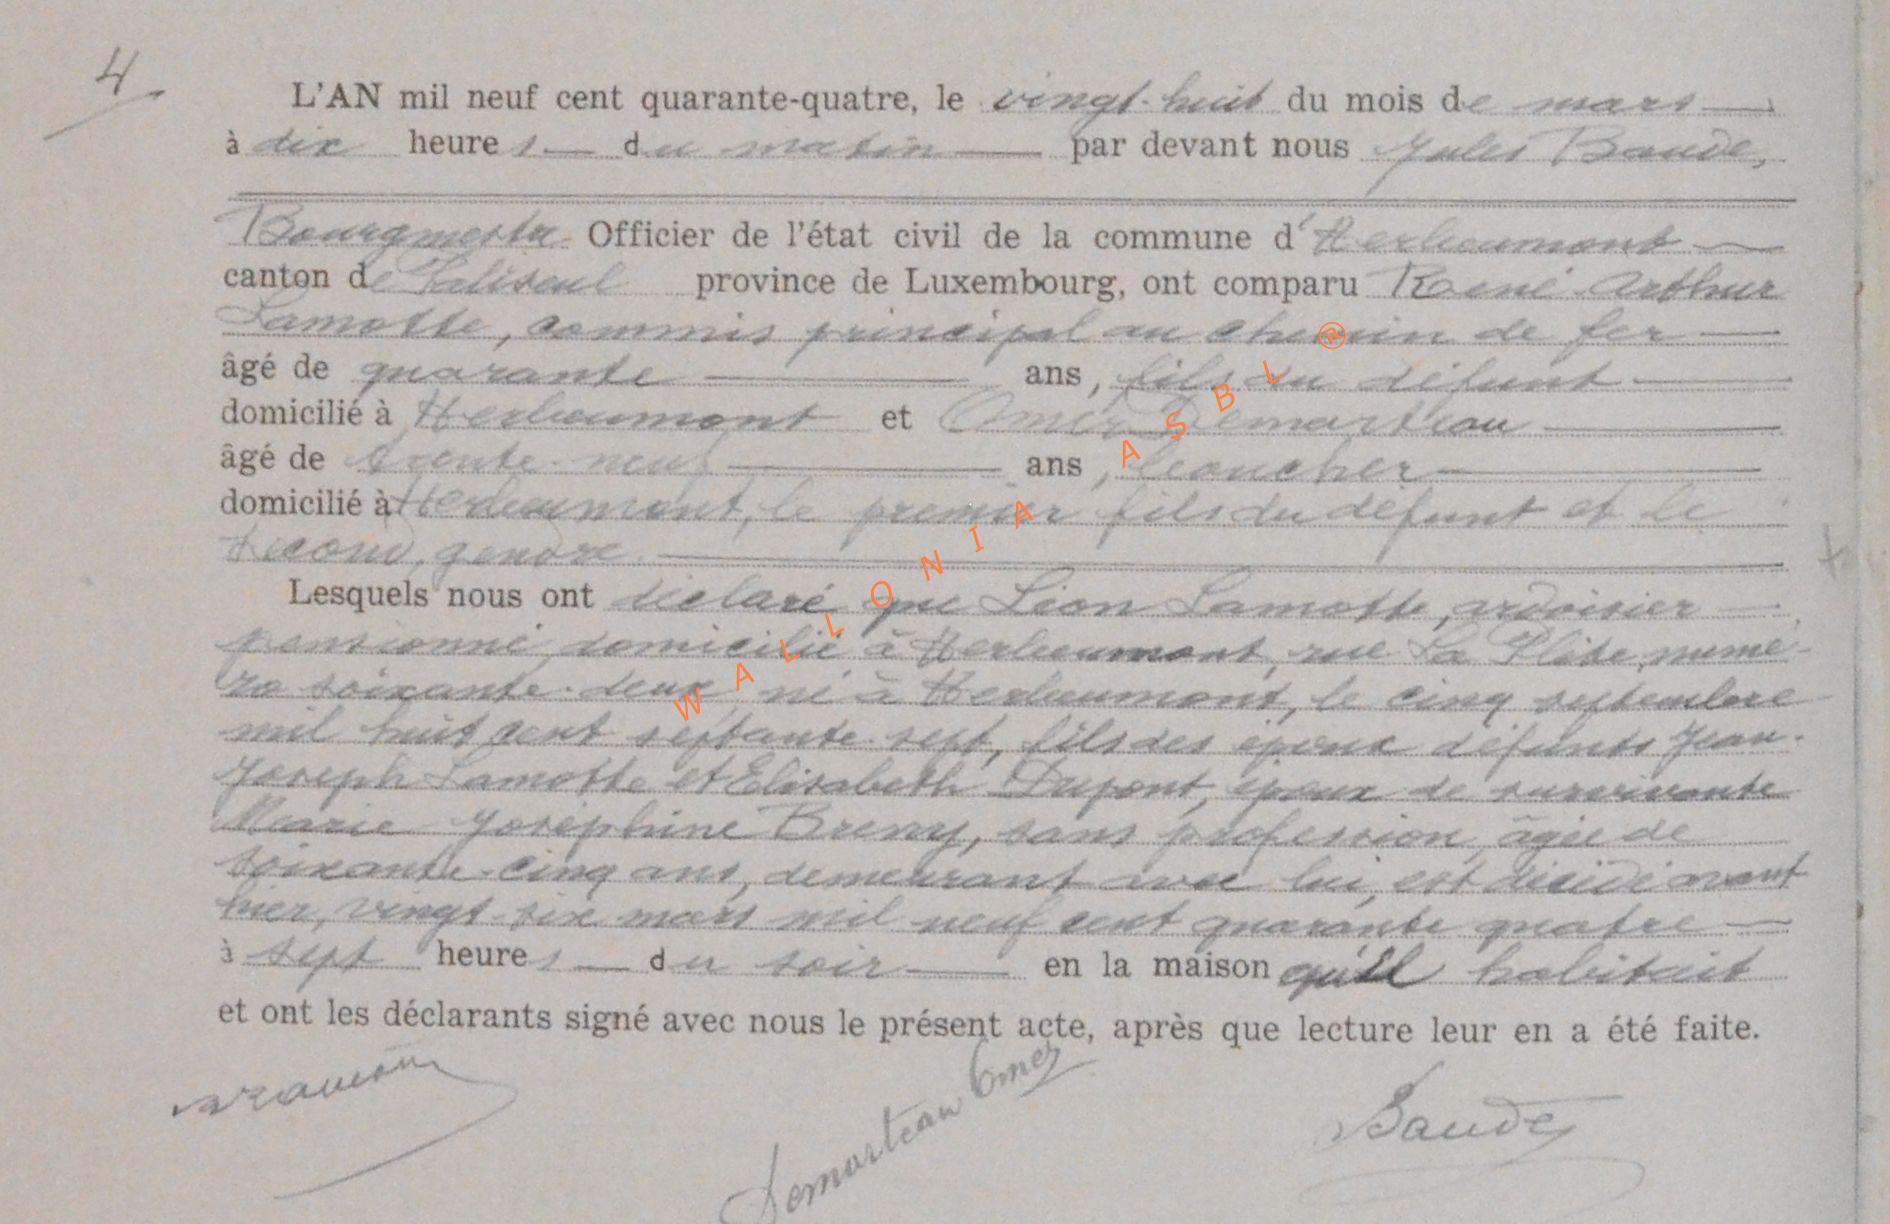 4
L'AN mil neuf cent quarante-quatre, le vingt-huit du mois de mars
à dix heures du matin par devant nous Jules Baude,
Bourgmestre Officier de l'état civil de la commune d'Herbeumont
canton de Paliseul province de Luxembourg, ont comparu René Arthur
Lamotte, commis principal au chemin de fer
âgé de quarante ans, fils du défunt
domicilié à Herbeumont et Omer Demarteau
âgé de trente-neuf ans,
domicilié à Herbeumont, le premier fils du défunt et le
second, gendre.
Lesquels nous ont déclaré que Léon Lamotte, ardoisier
pensionné, domicilié à Herbeumont, rue La Plite, numé-
ro soixante-deux, né à Herbeumont, le cinq septembre
mil huit cent septante-sept, fils des époux défunts Jean-
Joseph Lamotte et Elisabeth Dupont, époux de survivante
Marie Joséphine Breny, sans profession, âgée de
soixante-cinq ans, demeurant avec lui, est décédé avant
hier, vingt-six mars mil neuf cent quarante quatre
à sept heures du soir en la maison qu'il habitait
et ont les déclarants signé avec nous le présent acte, après que lecture leur en a été faite.
Demarteau Omer
Baude
WALLONIA ASBL ®